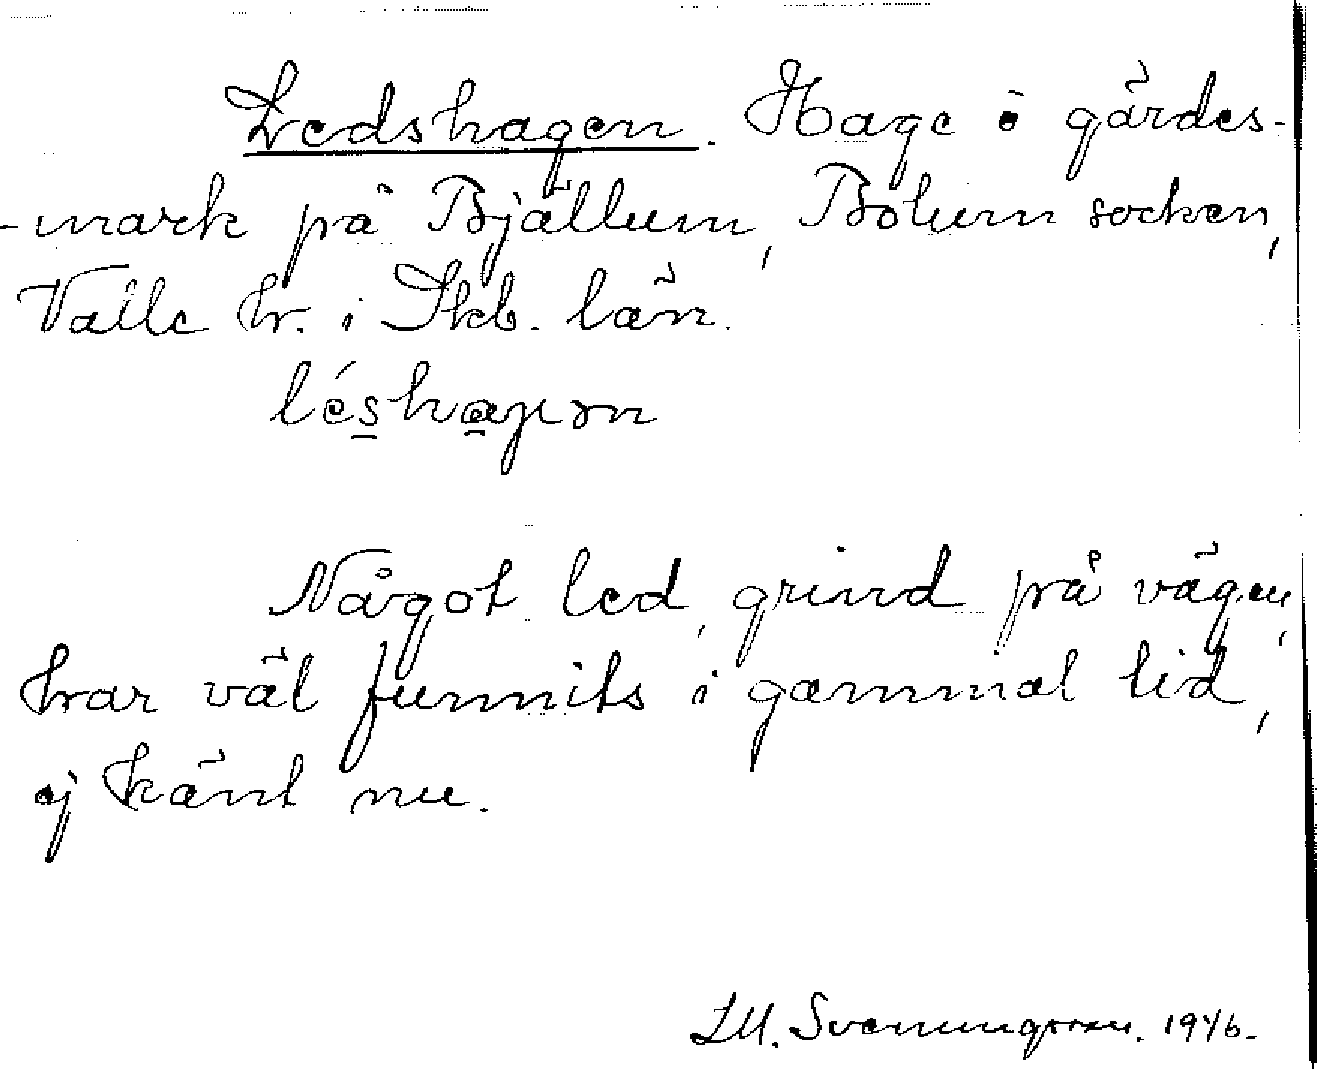 Ledshagen. Hage i gärdes-
-mark på Bjällum, Bolum socken,
Valle hr. i Skb. län.
léshaɡən
Något led, grind på vägen,
har väl funnits i gammal tid,
ej känt nu.
Svenungsson. 1946.